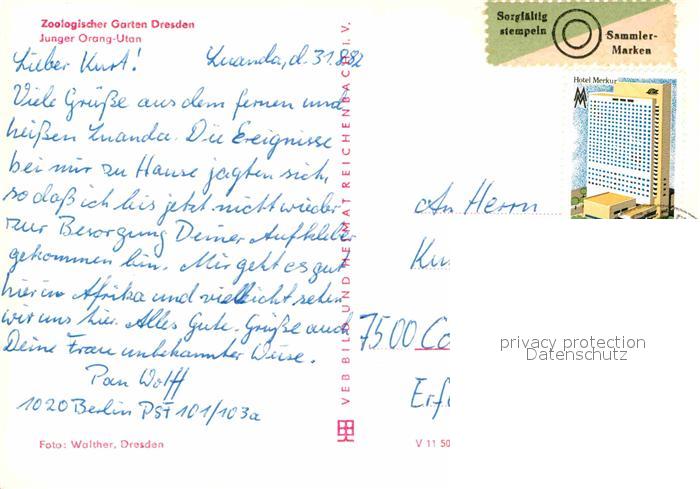 Zoologischer Garten Dresden
Junger Orang-Utan
Lieber Kurt! Luanda, d. 31.8.82
Viele Grüße aus dem fernen und
heißen Luanda. Die Ereignisse
bei mir zu Hause jagten sich,
so daß ich bis jetzt nicht wieder
zur Besorgung Deiner Aufkleber
gekommen bin. Mir geht es gut
hier in Afrika und vielleicht sehen
wir uns hier. Alles Gute. Grüße auch
Deine Frau unbekannter Weise.
Wolff
1020 Berlin PSF 101/103a
Foto: Walther, Dresden
VEB BILD UND HEIMAT REICHENBACH I. V.
Sorgfältig
stempeln
Sammler-
Marken
Hotel Merkur
MM
An Herrn
Ku
7500 Co
Erf
V 11 50
privacy protection
Datenschutz